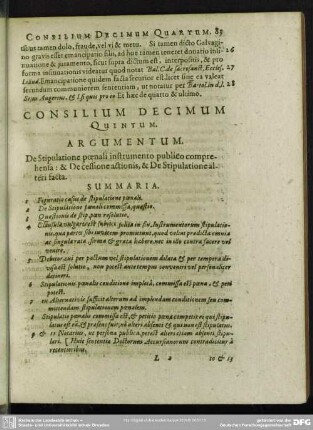 CONSILIUM DECIMUM QUARTUM. 85
situr tamen dolo, fraude, vel vi & metu. Si tamen dicto Galvagi-
no gravis esset emancipatio filii, ad huc tamen teneret donatio insi- 26
nuatione & juramento, sicut supra dictum est, interpositis, & pro
forma insinuationis videatur quod notat Bal. C. de sacrosanct. Eccles. 27
emancipatione quidem facta securior est, licet sine ea valeat
secundum communiorem sententiam, ut notatur per Bartol. in d. l. 28
Et hæc de quarto & ultimo.
CONSILIUM DECIMUM
QUINTUM.
ARGUMENTUM.
De Stipulatione pœnali instrumento publico compre-
hensa: & De cessione actionis, & De Stipulatione al-
teri facta.
SUMMARIA.
1 Figuratio casus de stipulatione pœnali.
2 De Stipulatione pœnali commissa, quæstio.
3 Quæstionis de stip. pœn. resolutio.
4 Clausula vulgaris est subjici solita in fin. Instrumentorum stipulatio-
nis, qua partes sibi invicem promittunt, quod velint prædicta omnia
ac singula rata firma & grata habere, nec in ullo contra facere vel
venire.
5 Debitor, cui per pactum vel stipulationem dilata, & per tempora di-
visa est solutio, non potest ante tempus conveniri vel personaliter
detineri.
6 Stipulationis pœnalis conditione impleta, commissa est pœna, & peti
potest.
7 in Alternativis sufficit alterum ad implendam conditionem seu com-
mittendam stipulationem pœnalem.
8 Stipulatio pœnalis commissa est, & petitio pœnæ competit ei qui stipu-
latus est ei, & præsens fuit, nō alteri absenti & qui non est stipulatus.
9 & 11 Notarius, ut persona publica, potest alteri etiam absenti stipu-
lari. [Huic sententia Doctorum Accursianorum contradicunt à
recentioribus.
L 2 10 & 13